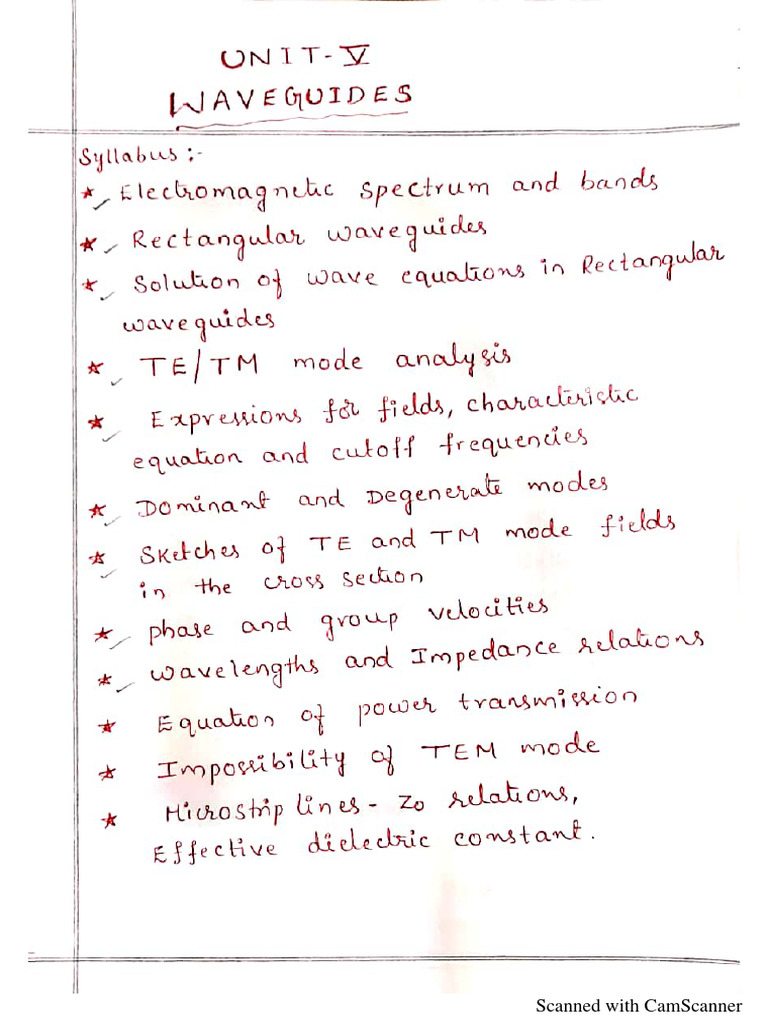 UNIT-V
WAVEGUIDES
Syllabus :-
* Electromagnetic spectrum and bands
* Rectangular waveguides
* Solution of wave equations in Rectangular
waveguides
* TE/TM mode analysis
* Expressions for fields, characteristic
equation and cutoff frequencies
* Dominant and Degenerate modes
* Sketches of TE and TM mode fields
in the cross section
* phase and group velocities
* wavelengths and Impedance relations
* Equation of power transmission
* Impossibility of TEM mode
* Microstrip lines - Zo relations,
Effective dielectric constant.
Scanned with CamScanner